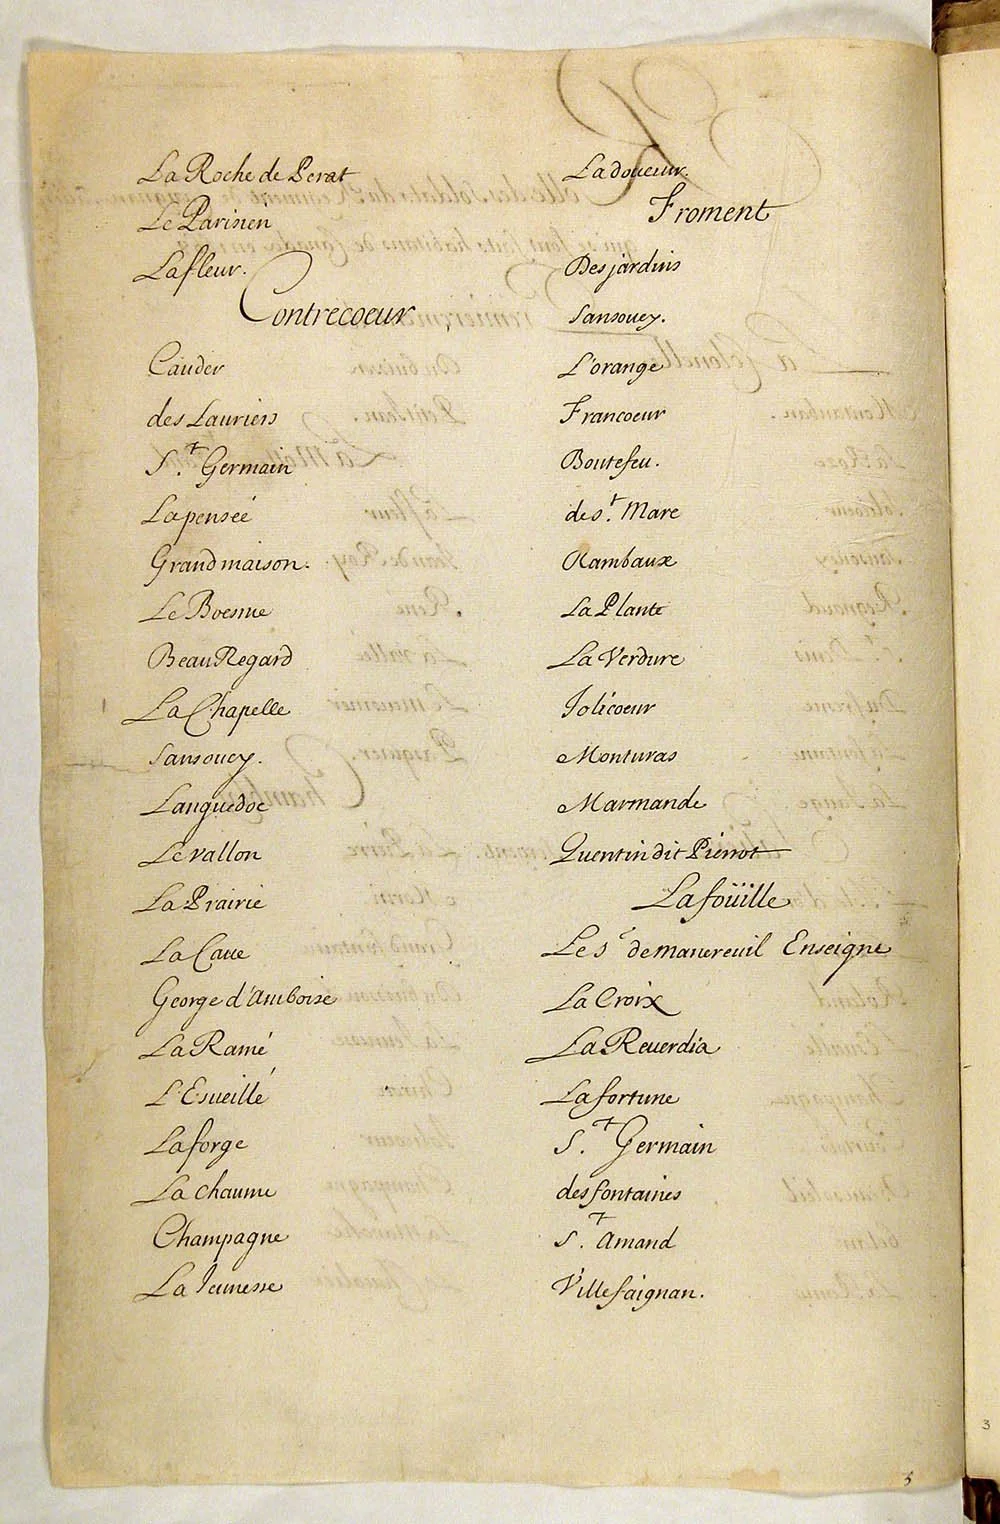 La Roche de Perat
Le Parisien
Lafleur.
Contrecoeur
Cauder
des Lauriers
S.t Germain
Lapenseé
Grandmaison.
Le Boesme
BeauRegard
La Chapelle
Sansoucy.
Languedoc
Levallon
La Prairie
La Caue
George d'Amboise
La Ramé
L'Esueillé
Laforge
La chaume
Champagne
La Jeunesse
Ladouceur.
Froment
Desjardins
Sansoucy.
L'orange
Francoeur
Boutefeu.
de s.t Mare
Rambaux
La Plante
La Verdure
Jolicoeur
Monturas
Marmande
Quentin dit Pierrot
Lafoüille
Le Sr de manereuil Enseigne
La Croix
La Reuerdia
Lafortune
S.t Germain
desfontaines
S.t Amand
Villefaignan.
5
3